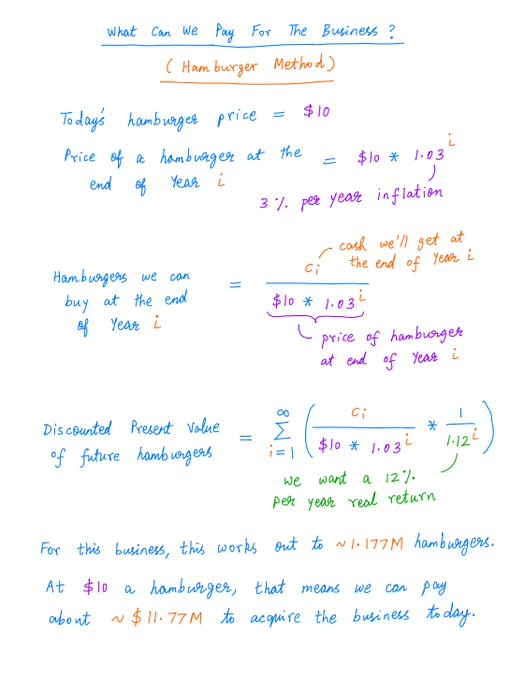 What Can We Pay For The Business?
(Hamburger Method)
Today's hamburger price = $10
Price of a hamburger at the end of Year i = $10 * 1.03^i
3% per year inflation
Hamburgers we can buy at the end of Year i = c_i / ($10 * 1.03^i)
cash we'll get at the end of Year i
price of hamburger at end of Year i
Discounted Present Value of future hamburgers = ∑_{i=1}^{∞} ( c_i / ($10 * 1.03^i) * 1 / 1.12^i )
we want a 12% per year real return
For this business, this works out to ~1.177M hamburgers.
At $10 a hamburger, that means we can pay
about ~$11.77M to acquire the business today.